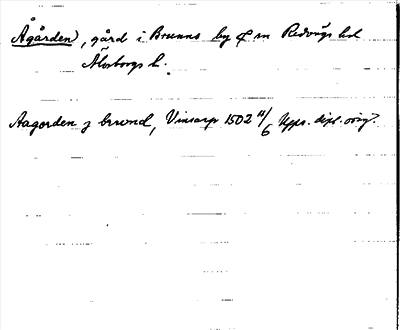 Ågården, gård i Brunns by o sn Redvägs hd
Älvsborgs l.
Aagorden j brwnd, Vinsarp 1502 11/6 Upps. dipl. orig.